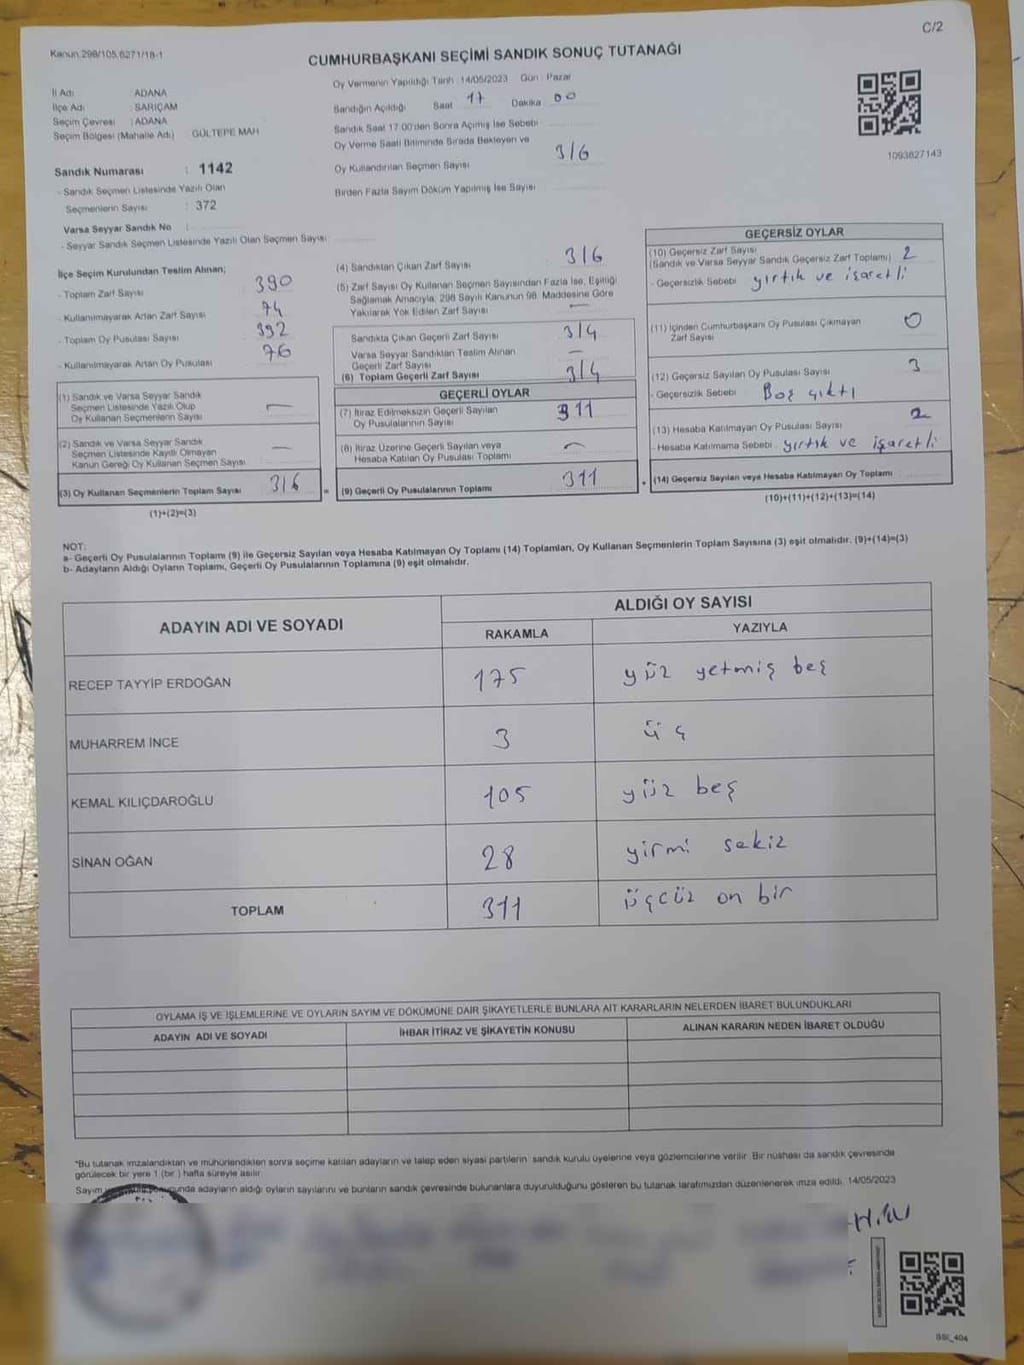 C/2
Kanun 298/105,6271/18-1
CUMHURBAŞKANI SEÇİMİ SANDIK SONUÇ TUTANAĞI
İl Adı : ADANA
İlçe Adı : SARIÇAM
Seçim Çevresi : ADANA
Seçim Bölgesi (Mahalle Adı) : GÜLTEPE MAH
Oy Vermenin Yapıldığı Tarih : 14/05/2023 Gün : Pazar
Sandığın Açıldığı Saat 17 Dakika 00
Sandık Saat 17:00'den Sonra Açılmış İse Sebebi
Oy Verme Saati Bitiminde Sırada Bekleyen ve
Oy Kullandırılan Seçmen Sayısı 316
Birden Fazla Sayım Döküm Yapılmış İse Sayısı
1093827143
Sandık Numarası : 1142
- Sandık Seçmen Listesinde Yazılı Olan
Seçmenlerin Sayısı : 372
Varsa Seyyar Sandık No :
- Seyyar Sandık Seçmen Listesinde Yazılı Olan Seçmen Sayısı
İlçe Seçim Kurulundan Teslim Alınan;
- Toplam Zarf Sayısı 390
- Kullanılmayarak Artan Zarf Sayısı 74
- Toplam Oy Pusulası Sayısı 392
- Kullanılmayarak Artan Oy Pusulası 76
(1) Sandık ve Varsa Seyyar Sandık
Seçmen Listesinde Yazılı Olup
Oy Kullanan Seçmenlerin Sayısı —
(2) Sandık ve Varsa Seyyar Sandık
Seçmen Listesinde Kayıtlı Olmayan
Kanun Gereği Oy Kullanan Seçmen Sayısı —
(3) Oy Kullanan Seçmenlerin Toplam Sayısı 316 =
(1)+(2)=(3)
(4) Sandıktan Çıkan Zarf Sayısı 316
(5) Zarf Sayısı Oy Kullanan Seçmen Sayısından Fazla İse, Eşitliği
Sağlamak Amacıyla, 298 Sayılı Kanunun 98. Maddesine Göre
Yakılarak Yok Edilen Zarf Sayısı —
Sandıkta Çıkan Geçerli Zarf Sayısı 314
Varsa Seyyar Sandıktan Teslim Alınan
Geçerli Zarf Sayısı —
(6) Toplam Geçerli Zarf Sayısı 314
GEÇERLİ OYLAR
(7) İtiraz Edilmeksizin Geçerli Sayılan
Oy Pusulasının Sayısı 311
(8) İtiraz Üzerine Geçerli Sayılan veya
Hesaba Katılan Oy Pusulası Toplamı —
(9) Geçerli Oy Pusulalarının Toplamı 311
GEÇERSİZ OYLAR
(10) Geçersiz Zarf Sayısı
(Sandık ve Varsa Seyyar Sandık Geçersiz Zarf Toplamı) 2
- Geçersizlik Sebebi yırtık ve işaretli
(11) İçinden Cumhurbaşkanı Oy Pusulası Çıkmayan
Zarf Sayısı 0
(12) Geçersiz Sayılan Oy Pusulası Sayısı 3
- Geçersizlik Sebebi Boş çıktı
(13) Hesaba Katılmayan Oy Pusulası Sayısı 2
- Hesaba Katılmama Sebebi yırtık ve işaretli
+ (14) Geçersiz Sayılan veya Hesaba Katılmayan Oy Toplamı
(10)+(11)+(12)+(13)=(14)
NOT:
a- Geçerli Oy Pusulalarının Toplamı (9) ile Geçersiz Sayılan veya Hesaba Katılmayan Oy Toplamı (14) Toplamları, Oy Kullanan Seçmenlerin Toplam Sayısına (3) eşit olmalıdır. (9)+(14)=(3)
b- Adayların Aldığı Oyların Toplamı, Geçerli Oy Pusulalarının Toplamına (9) eşit olmalıdır.
ADAYIN ADI VE SOYADI ALDIĞI OY SAYISI
RAKAMLA YAZIYLA
RECEP TAYYİP ERDOĞAN 175 yüz yetmiş beş
MUHARREM İNCE 3 üç
KEMAL KILIÇDAROĞLU 105 yüz beş
SİNAN OĞAN 28 yirmi sekiz
TOPLAM 311 üçcüz on bir
OYLAMA İŞ VE İŞLEMLERİNE VE OYLARIN SAYIM VE DÖKÜMÜNE DAİR ŞİKAYETLERLE BUNLARA AİT KARARLARIN NELERDEN İBARET BULUNDUKLARI
ADAYIN ADI VE SOYADI İHBAR İTİRAZ VE ŞİKAYETİN KONUSU ALINAN KARARIN NEDEN İBARET OLDUĞU
*Bu tutanak imzalandıktan ve mühürlendikten sonra seçime katılan adayların ve talep eden siyasi partilerin sandık kurulu üyelerine veya gözlemcilerine verilir. Bir nüshası da sandık çevresinde
görülecek bir yere 1 (bir) hafta süreyle asılır.
Sayım adayların aldığı oyların sayılarını ve bunların sandık çevresinde bulunanlara duyurulduğunu gösteren bu tutanak tarafımızdan düzenlenerek imza edildi. 14/05/2023
SSI_404